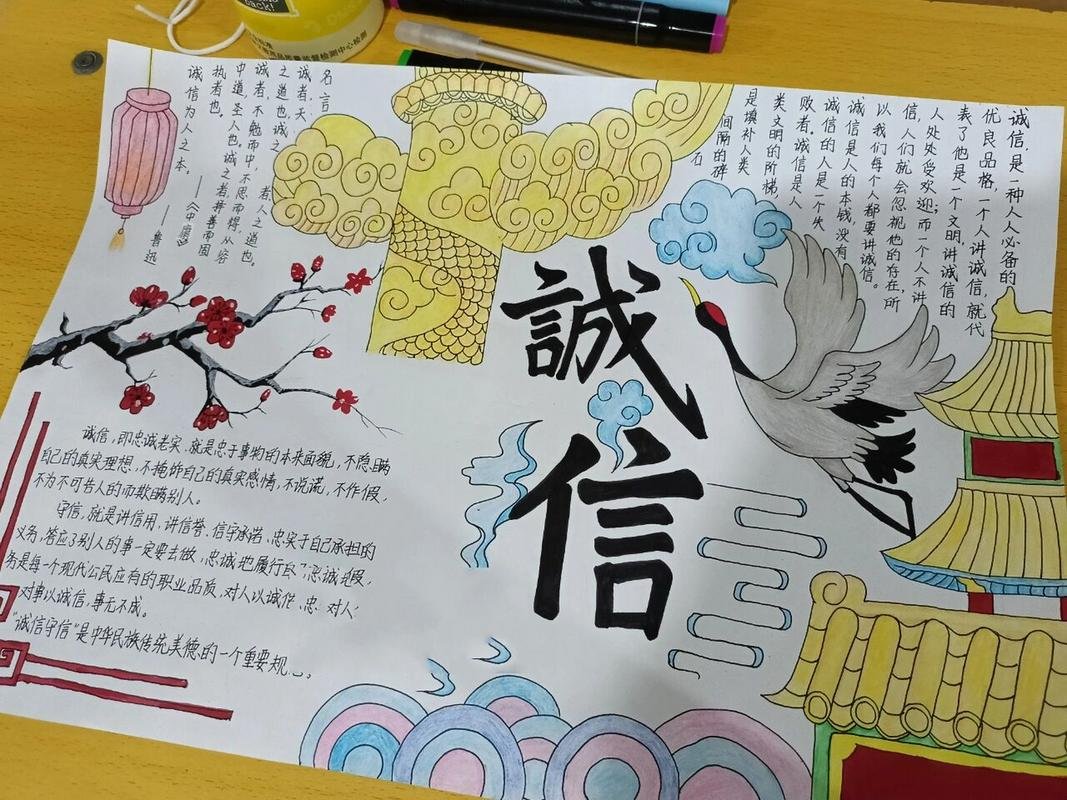 名言
诚者,天
之道也,诚之者,人之道也。
诚者,不勉而中,不思而得,从容
中道,圣人也,诚之者,择善而固
执者也。
——《中庸》
诚信为人之本。
——鲁迅
诚信,是一种人人必备的
优良品格,一个人讲诚信,就代
表了他是一个文明,讲诚信的
人处处受欢迎;而一个人不讲
信,人们就会忽视他的存在,所
以我们每个人都要讲诚信。
诚信是人的本钱,没有
诚信的人是一个失
败者,诚信是人
类文明的阶梯,
是填补人类
间隔的碎
石
誠
信
诚信,即忠诚老实,就是忠于事物的本来面貌,不隐瞒
自己的真实理想,不掩饰自己的真实感情,不说谎,不作假,
不为不可告人的而欺瞒别人。
守信,就是讲信用,讲信誉、信守承诺,忠实于自己承担的
义务,答应了别人的事一定要去做,忠诚地履行
务是每一个现代公民应有的职业品质,对人以诚 对人
对事以诚信,事无不成。
"诚信守信"是中华民族传统美德的一个重要规
back!
质量监督检测中心检测